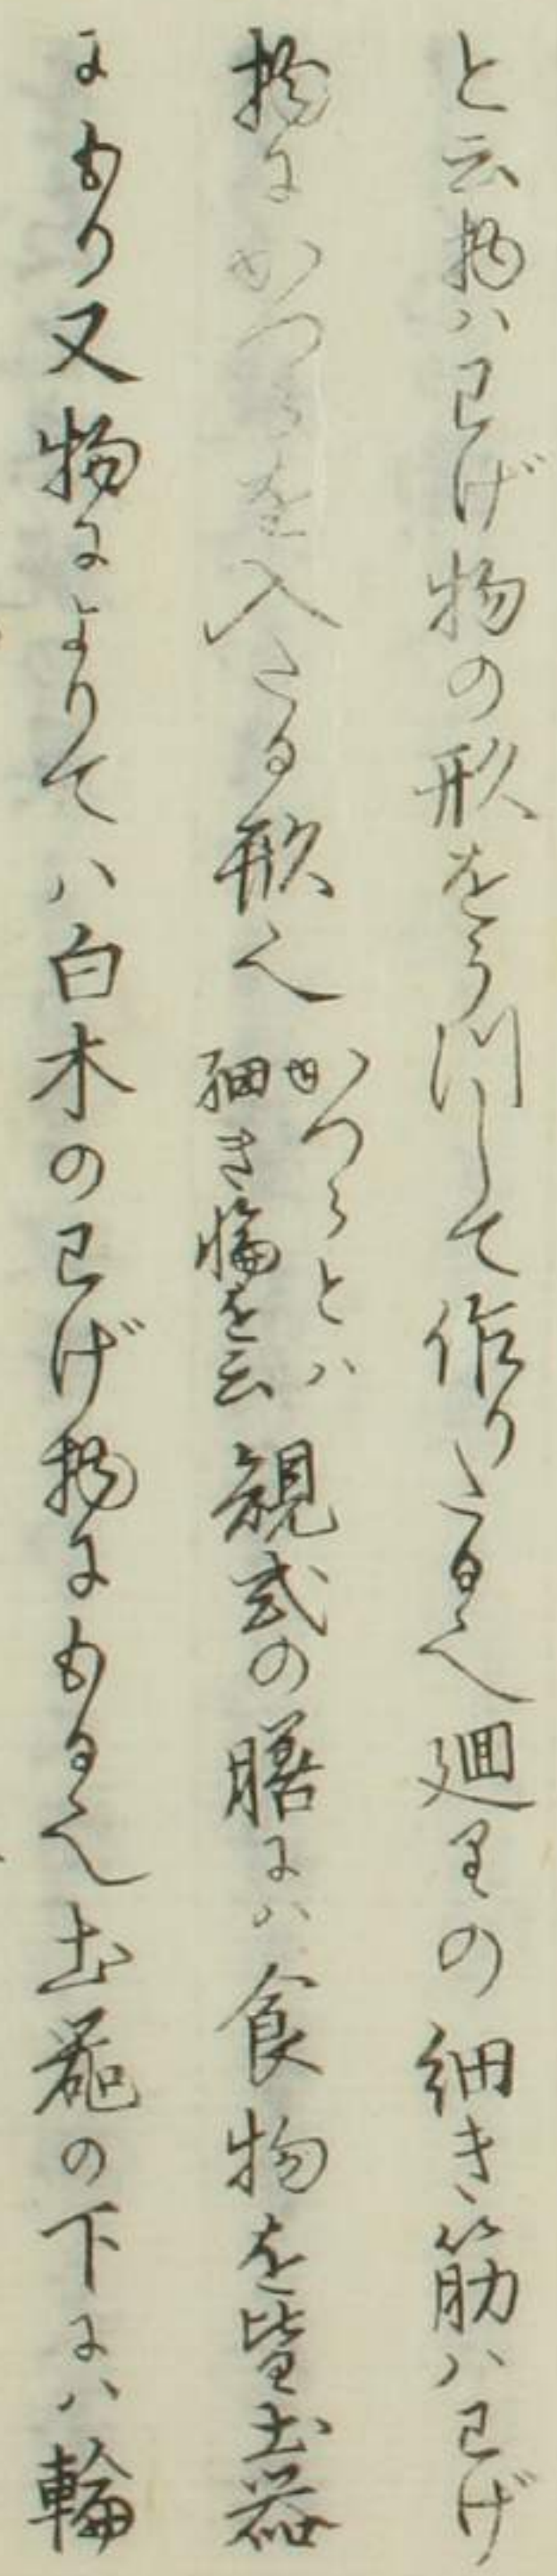 と云物ハわげ物の形をうつして作りたる也廻りの細き筋ハわげ
物にかつらを入たる形也かつらとハ細き輪を云規式の膳にハ食物を皆土器
にもり又物によりてハ白木のわげ物にもる也土器の下にハ輪